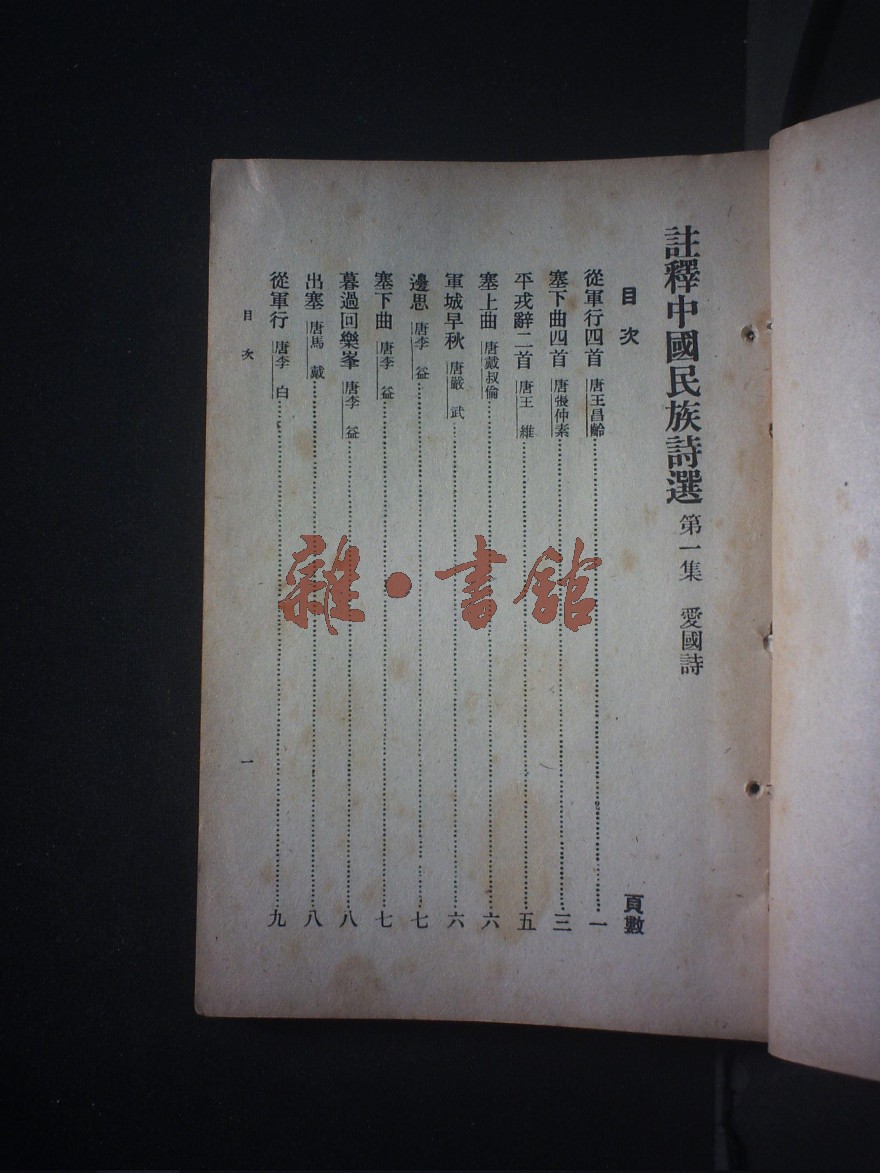 註釋中國民族詩選 第一集 愛國詩
目次 頁數
從軍行四首 唐王昌齡 一
塞下曲四首 唐張仲素 三
平戎辭二首 唐王維 五
塞上曲 唐戴叔倫 六
軍城早秋 唐嚴武 六
邊思 唐李益 七
塞下曲 唐李益 七
暮過回樂峯 唐李益 八
出塞 唐馬戴 八
從軍行 唐李白 九
目次 一
雜·書館